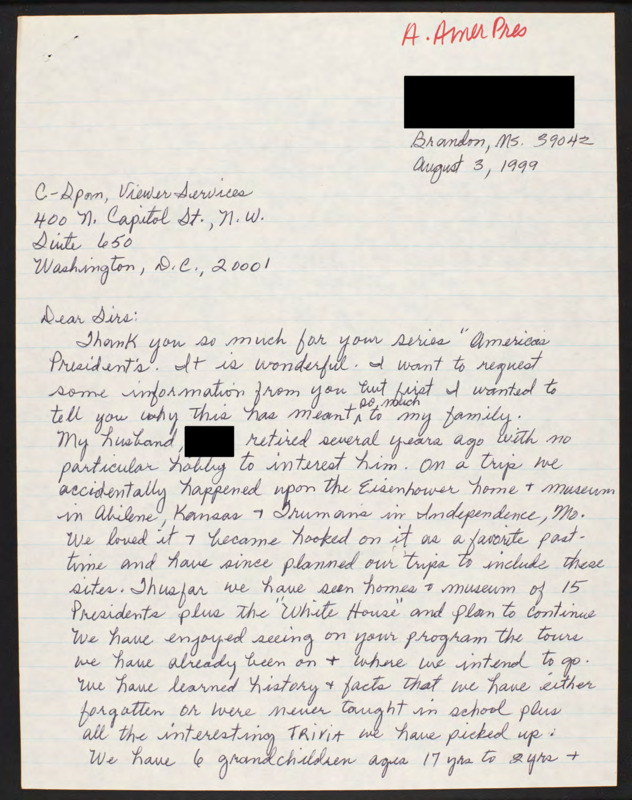 A. Amer Pres
Brandon, Ms. 39042
August 3, 1999
C-Span, Viewer Services
400 N. Capitol St., N.W.
Suite 650
Washington, D.C., 20001
Dear Sirs:
Thank you so much for your series "Americas
President's. It is wonderful. I want to request
some information from you but first I wanted to
tell you why this has meant so much to my family.
My husband, retired several years ago with no
particular hobby to interest him. On a trip we
accidentally happened upon the Eisenhower home + museum
in Abilene, Kansas + Trumans in Independence, Mo.
We loved it + became hooked on it as a favorite past-
time and have since planned our trips to include these
sites. Thusfar we have seen homes + museum of 15
Presidents plus the "White House" and plan to continue
We have enjoyed seeing on your program the tours
we have already been on + where we intend to go.
We have learned history + facts that we have either
forgotten or were never taught in school plus
all the interesting TRIVIA we have picked up.
We have 6 grandchildren ages 17 yrs to 2 yrs +